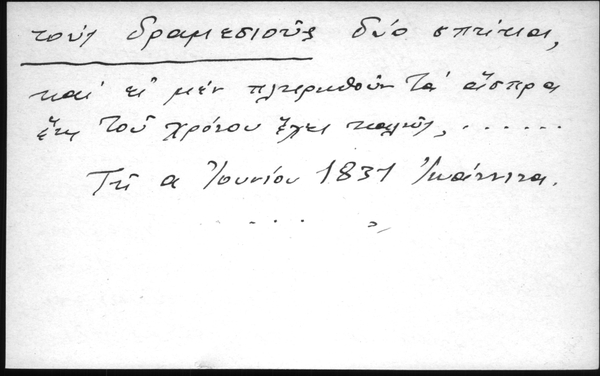 τοὺς δραμεσιοῦς δύο σπίτια,
καὶ εἰ μὲν πληρωθοῦν τὰ ἄσπρα
τοῦ χρόνου ἔχει καλῶς, . . . . . .
Τῇ α Ἰουνίου 1831 Ἰωάννινα.
. . . . »